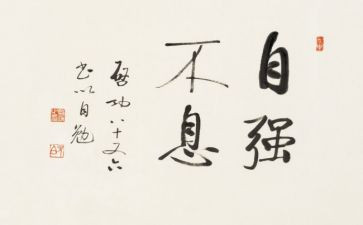 自强
不息
启功八十又六
书以自勉